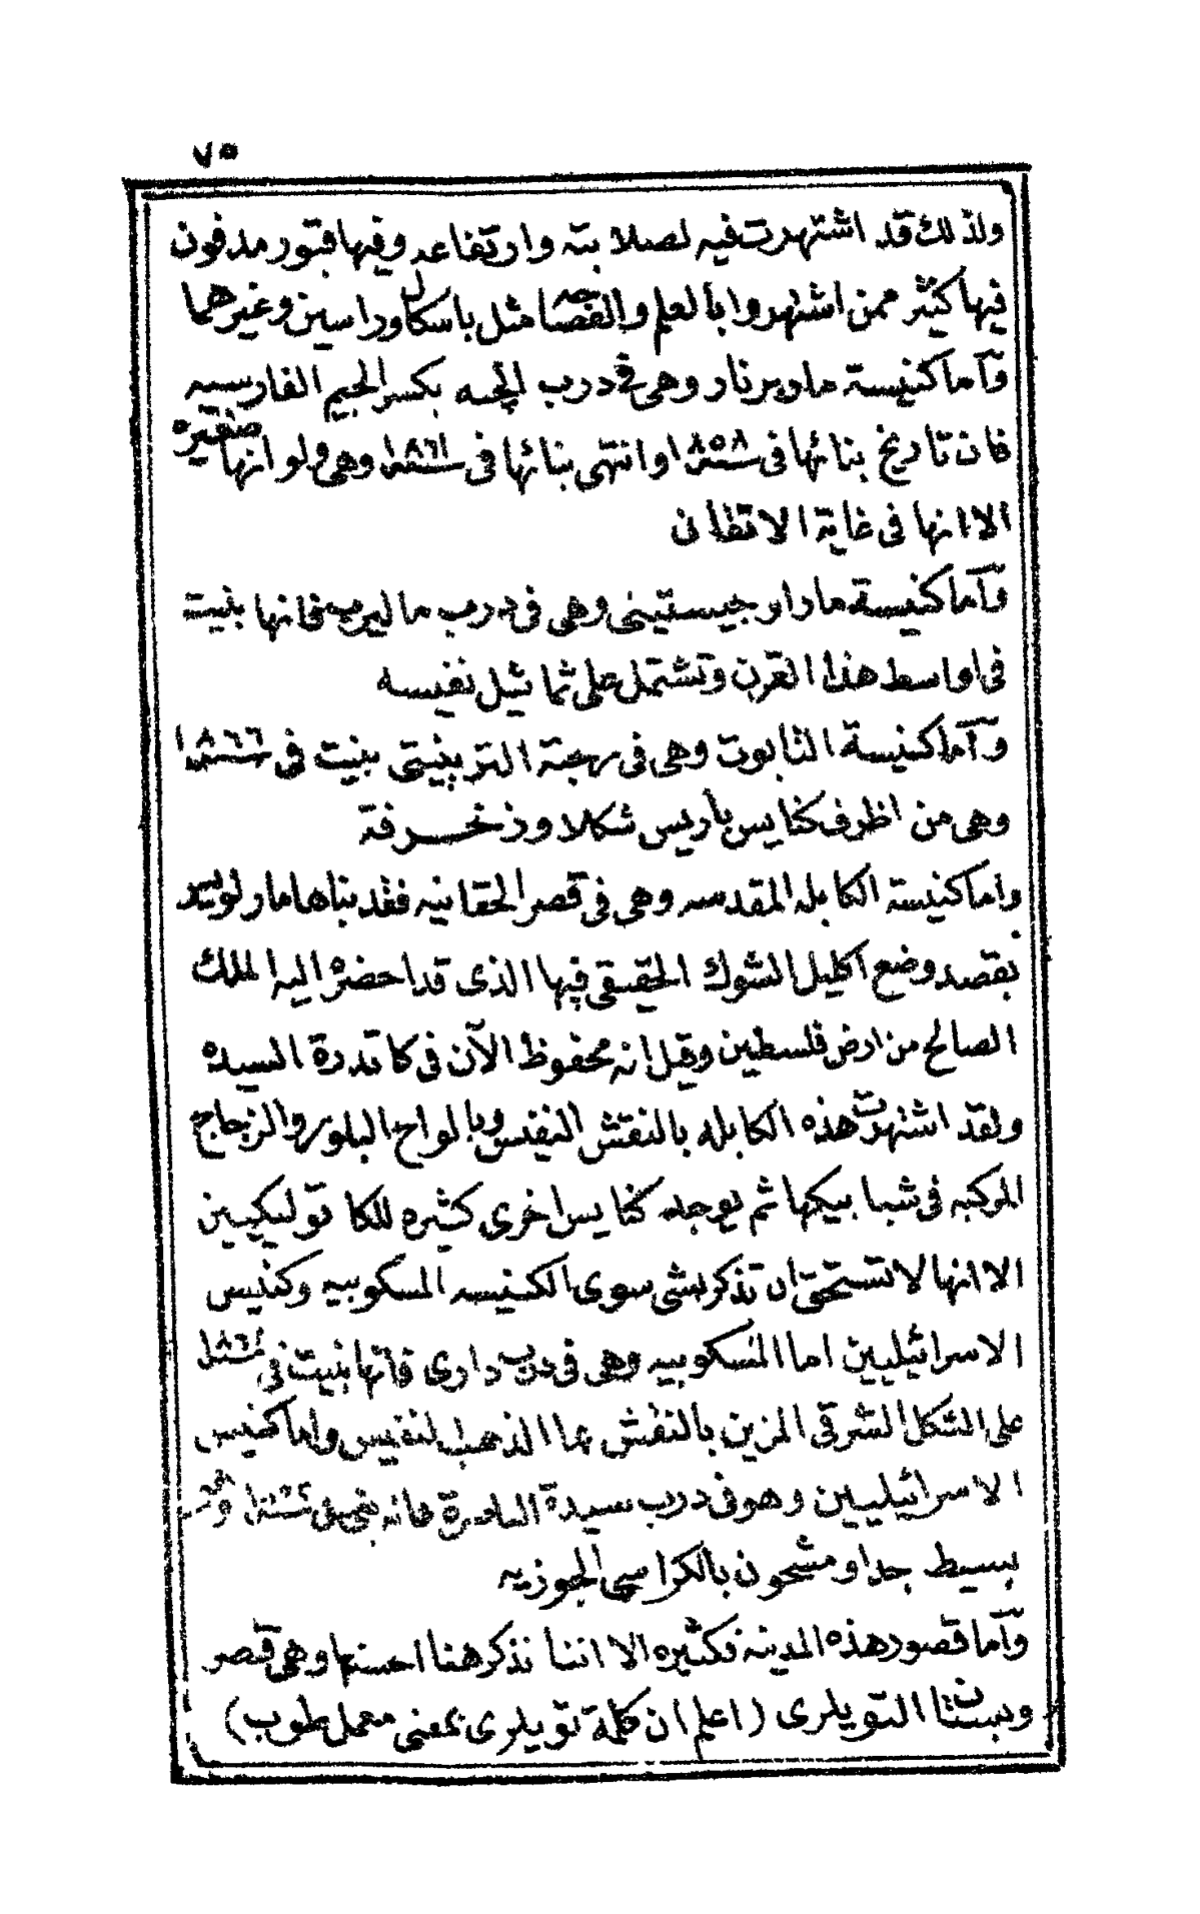 ٧٥
ولذلك قد اشتهرت فيه لصلابته وارتفاعه وفيها قبور مدفون
فيها كثير ممن اشتهروا بالعلم والفصاحه مثل باسكال وراسين وغيرهما
وأما كنيسة ماربرنار وهي في درب الچسه بكسر الجيم الفارسيه
فان تاريخ بنائها في سنة ١٨٥٨ وانتهى بنائها في سنة ١٨٦١ وهي ولو انها صغيره
الا انها في غاية الاتقان
وأما كنيسة مار اوجيستيني وهي في درب ماليرب فانها بنيت
في اواسط هذا القرن وتشتمل على تماثيل نفيسه
وأما كنيسة الثابوت وهي في رحبة التربنيتي بنيت في سنة ١٨٦٦
وهي من اظرف كنايس باريس شكلا وزخرفة
واما كنيسة الكابله المقدسه وهي في قصر الحقانيه فقد بناها مار لويز
بقصد وضع اكليل الشوك الحقيقي فيها الذي قد احضره اليه الملك
الصالح من ارض فلسطين وقيل انه محفوظ الآن في كاتدرة السيده
ولقد اشتهرت هذه الكابله بالنقش النفيس وبالواح البلور والزجاج
المركبه في شبابيكها ثم يوجد كنايس اخرى كثيره للكاتوليكيين
الا انها لا تستحق ان تذكر بشي سوى الكنيسه المسكوبيه وكنيس
الاسرائيليين اما المسكوبيه وهي في درب دارى فانها بنيت في سنة ١٨٦١
على الشكل الشرقي المزين بالنقش بماء الذهب النفيس واما كنيس
الاسرائيليين وهو في درب سيدة الناصرة فانه بني في سنة
بسيط جدا ومشحون بالكراسي الجوزيه
وأما قصور هذه المدينه فكثيره الا اننا نذكر هنا احسنها وهي قصر
وبستان التويلرى (اعلم ان كلمة تويلرى بمعنى معمل طوب)